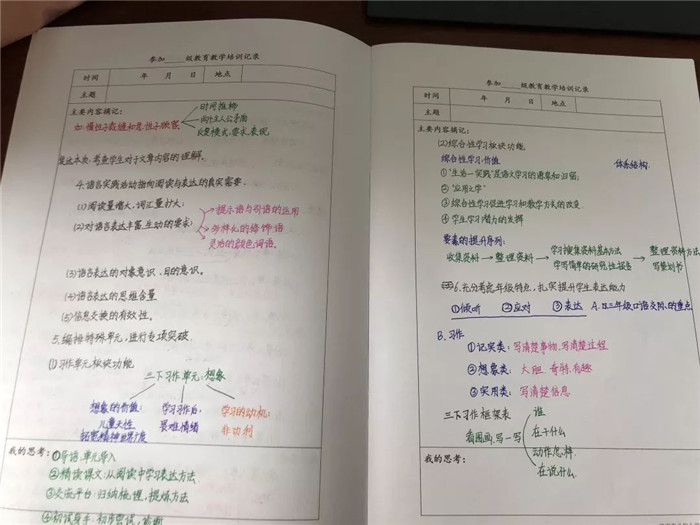 参加____级教育教学培训记录
时间 年 月 日 地点
主题
主要内容摘记:
时间推移
如:慢性子裁缝和急性子顾客 向主人公矛盾
反复模式,要求,表现
表达本质,考查学生对于文章内容的理解。
4.语言实践活动指向阅读与表达的真实需要.
(1)阅读量增大,词汇量扩大:
提示语与引语的运用
(2)对语言表达丰富、生动的要求: 多样化的修饰语
灵活的颜色词语.
(3)语言表达的对象意识、目的意识。
(4)语言表达的思维含量
(5)信息交换的有效性。
5.编排特殊单元,进行专项突破
(1)习作单元板块功能
三下习作单元:想象
想象的价值: 学习习作后, 学习的动机:
儿童天性 畏难情绪 非功利
拓宽精神世界广度
我的思考: ①导语:单元导入
②精读课文:从阅读中学习表达方法
③交流平台:归纳梳理,提炼方法
④初试身手:初步尝试,
参加____级教育教学培训记录
时间 年 月 日 地点
主题
主要内容摘记:
(2)综合性学习板块功能
综合性学习,价值 体系结构.
①"生活—实践"是语文学习的源泉和过宿;
②"应用之学"
③综合性学习促进学习和教学方式的改变.
④学生学习潜力的发挥
要素的提升序列:
收集资料 → 整理资料 → 学习搜集资料基本方法 → 整理资料方法
学写简单的研究性报告 写策划书
6.充分考虑年级特点,扎实提升学生表达能力
①倾听 ②应对 ③表达 A.四三年级口语交际的重点
B.习作
①记实类:写清楚事物,写清楚过程
②想象类:大胆、奇特、有趣
③实用类:写清楚信息
三下习作框架表 谁
看图画,写一写 在干什么
动作怎样.
我的思考: 在说什么.